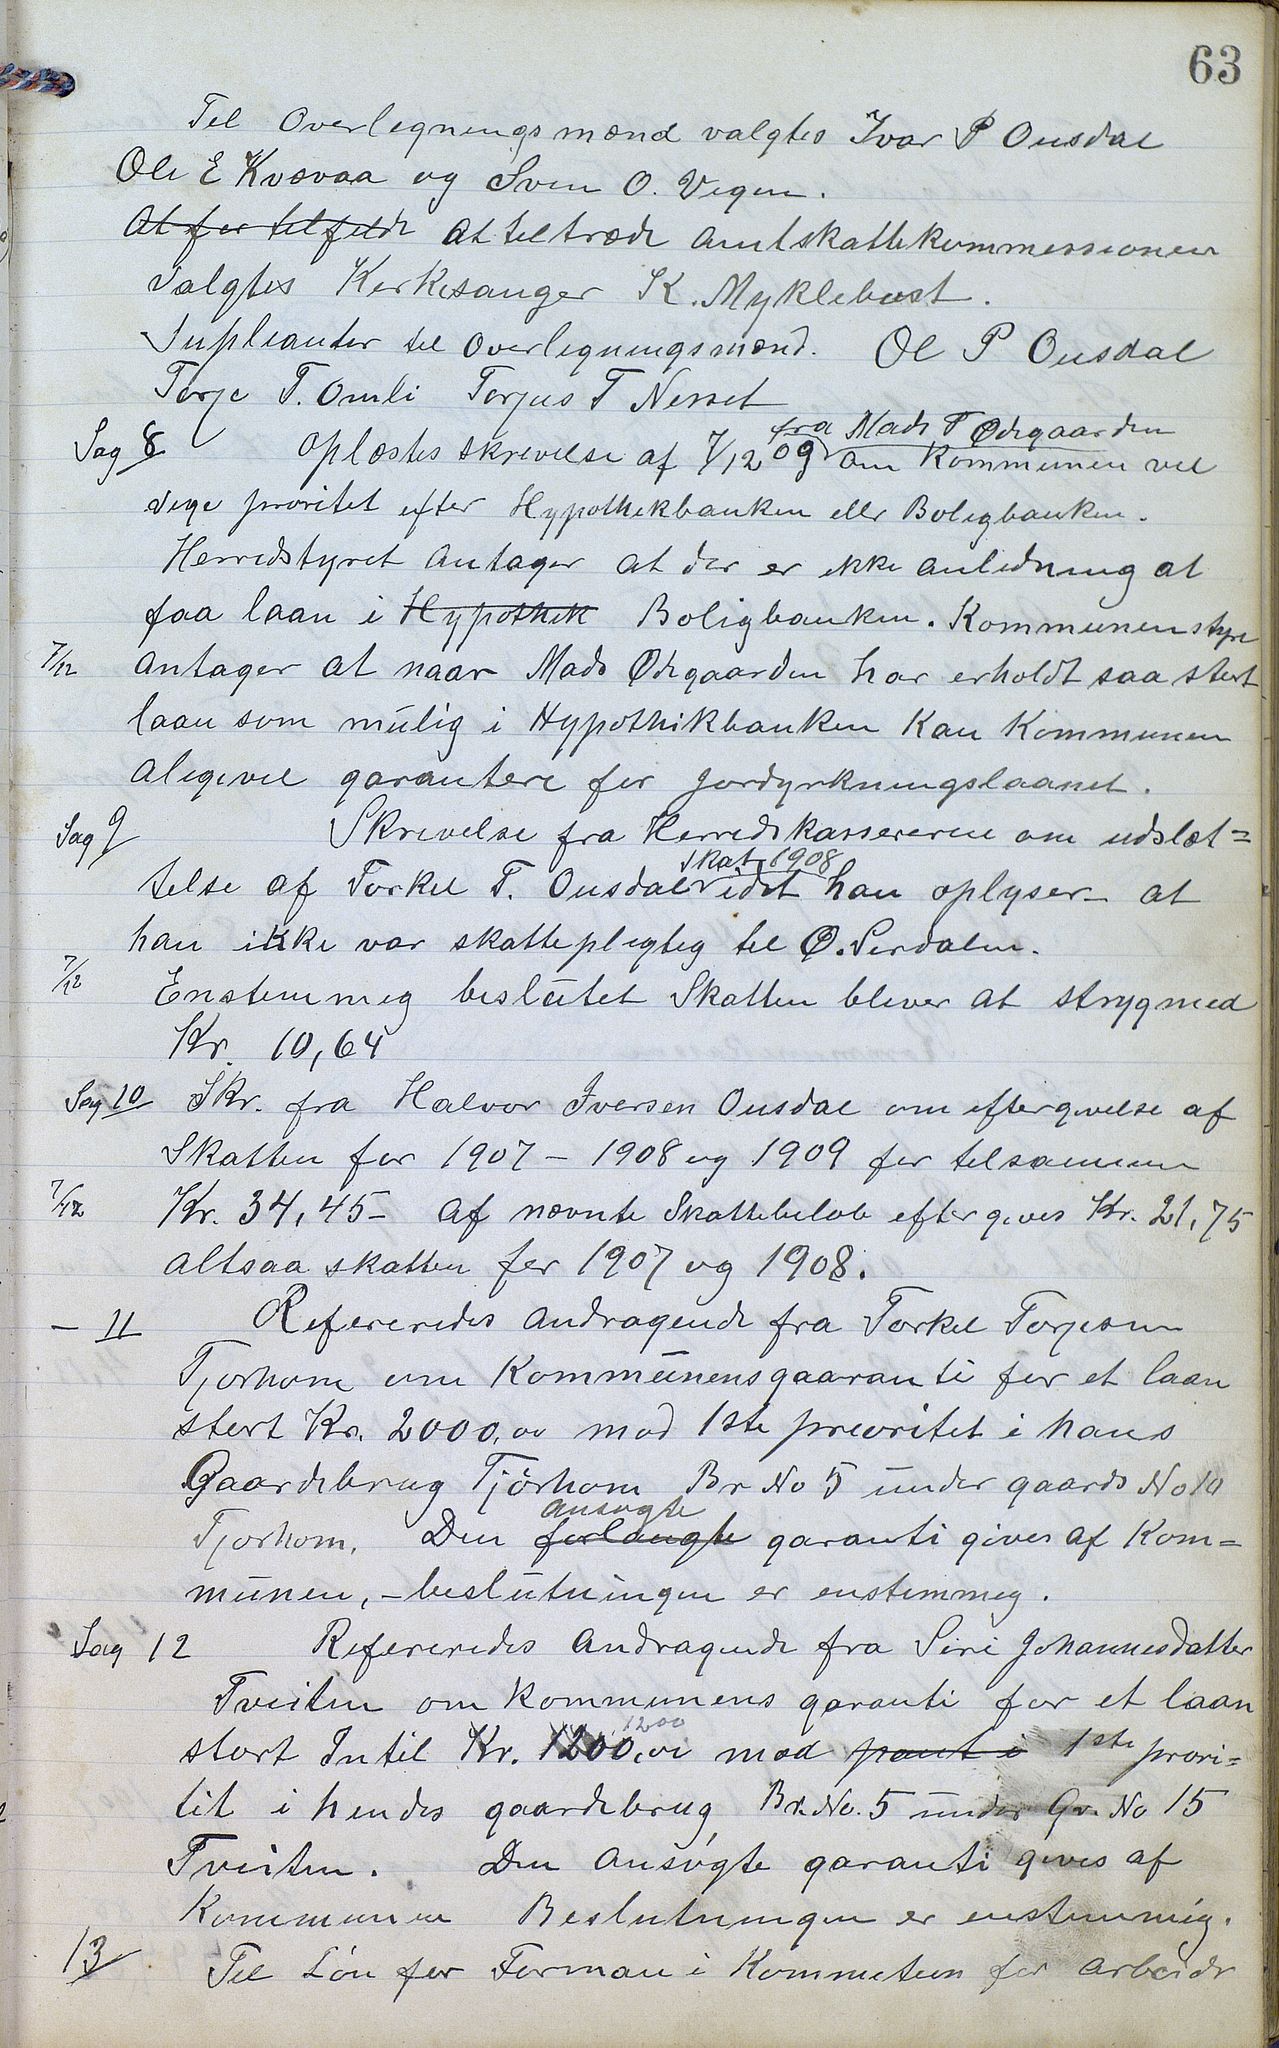 63
Til Overligningsmænd valgtes Ivar P Ousdal
Ole E Kvævaa og Sven O. Vegen.
At for tilfelde At tiltræde Amtskattekommissionen
valgtes Kerkesanger K. Myklebust.
Supleanter til Overligningsmænd. Ol P Ousdal
Torje T. Omli Torjus T Nesset
fra Mads T Ødegaarden
Sag 8 Oplæstes skrivelse af 7/12 09 om Kommunen vil
vige prioritet efter Hypothekbanken eller Boligbanken.
Herredstyret Antager at der er ikke anledning at
faa laan i Hypothek Boligbanken. Kommunenstyre
7/12 antager at naar Mads Ødegaarden har erholdt saa stort
laan som mulig i Hypothikbanken Kan Kommunen
Aligevel garantere for jordyrkningslaanet.
Sag 9 Skrivelse fra Herredskassereren om udslæt=
skat 1908
telse af Torkel T. Ousdal idet han oplyser - at
han ikke var skattepligtig til Ø. Sirdalen.
7/12 Enstemmig beslutet Skatten bliver at stryg med
Kr. 10,64
Sag 10 Skr. fra Halvor Iversen Ousdal om eftergivelse af
Skatten for 1907 - 1908 og 1909 for tilsammen
7/12 Kr. 34,45 - Af nævnte Skattebeløb eftergives Kr. 21,75
altsaa skatten for 1907 og 1908.
- 11 Refereredes Andragende fra Torkel Torjesen
Tjorhom om Kommunensgaaranti for et laan
stort Kr. 2000,00 mod 1ste preoritet i hans
Gaardsbrug Tjörhom Br No 5 under gaards No 10
ansøgte
Tjorhom. Den forlangte garanti gives af Kom=
munen, - beslutningen er enstemmig.
Sag 12 Refereredes Andragende fra Siri Johannesdatter
Tveiten om kommunens garanti for et laan
1200
stort Intil Kr. 1200,00 mod pant i 1ste priori=
tit i hendes gaardsbrug Br. No. 5 under Gr. No 15
Tveiten. Den Ansøgte garanti gives af
Kommunen Beslutningen er enstemmig.
13 Til Løn for Forman i Kommeteen for arbeide